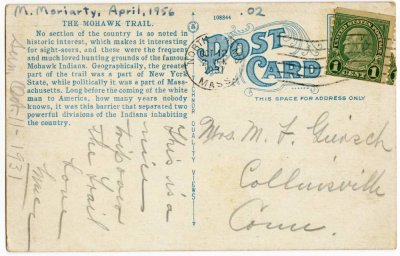 M. Moriarty, April, 1956
.02
108844
THE MOHAWK TRAIL.
No section of the country is so noted in
historic interest, which makes it interesting
for sight-seers, and these were the frequent
and much loved hunting grounds of the famous
Mohawk Indians. Geographically, the greater
part of the trail was a part of New York
State, while politically it was a part of Mass-
achusetts. Long before the coming of the white
man to America, how many years nobody
knows, it was this barrier that separated two
powerful divisions of the Indians inhabiting
the country.
This is a
nice
trip over
the trail
Love
POST
CARD
THIS SPACE FOR ADDRESS ONLY
NORTH
MASS
1 CENT 1
Mrs. M. F.
Collinsville
Conn.